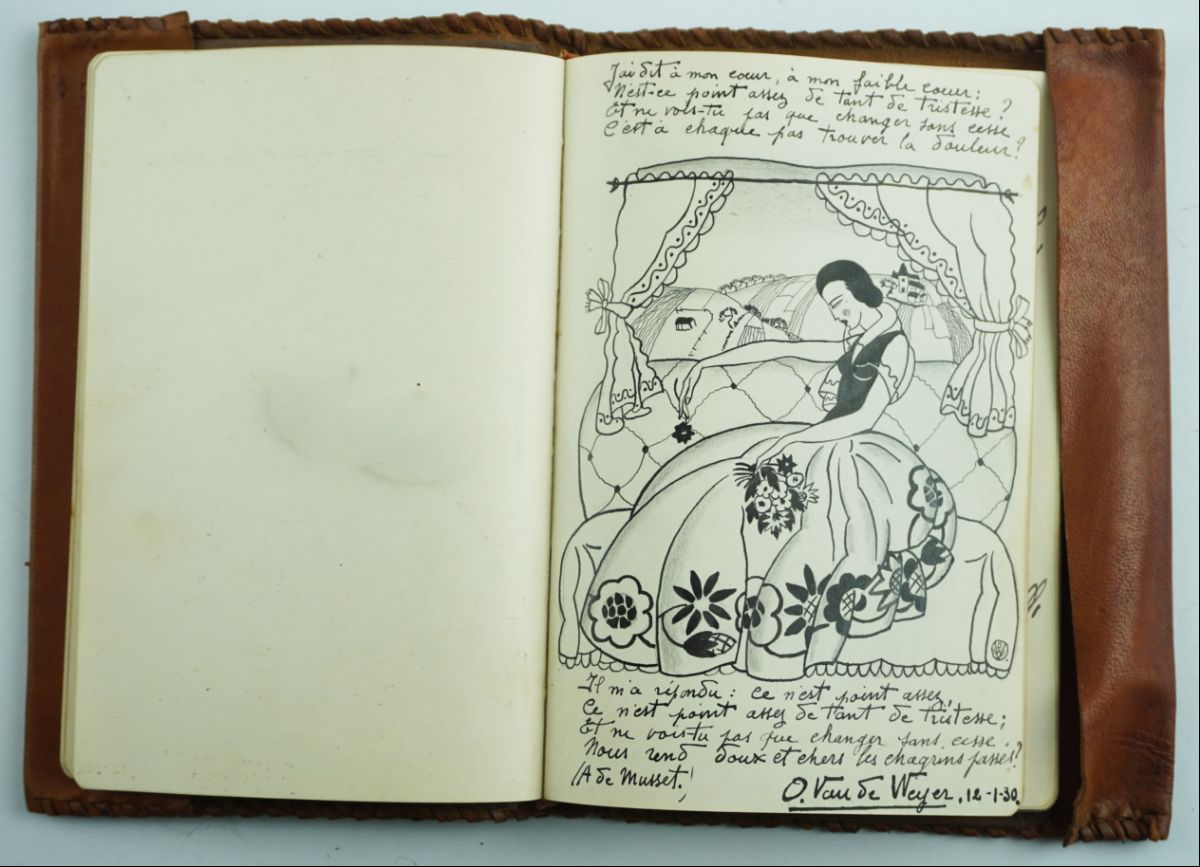 J'ai dit à mon cœur, à mon faible cœur:
N'est-ce point assez de tant de tristesse?
Et ne vois-tu pas que changer sans cesse
C'est à chaque pas trouver la douleur?
Il m'a répondu: ce n'est point assez,
Ce n'est point assez de tant de tristesse;
Et ne vois-tu pas que changer sans cesse
Nous rend doux et chers les chagrins passés?
(A de Musset.)
O. Van de Weyer, 12-1-30.